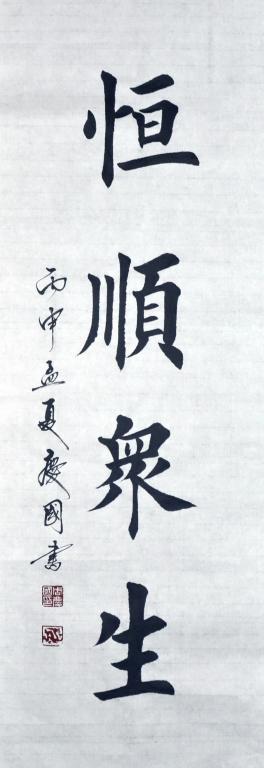 恒順眾生
丙申孟夏慶國書